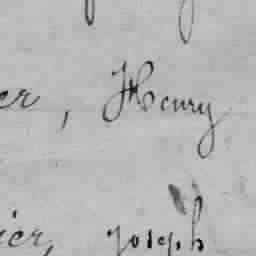 er, Henry
ier, Joseph